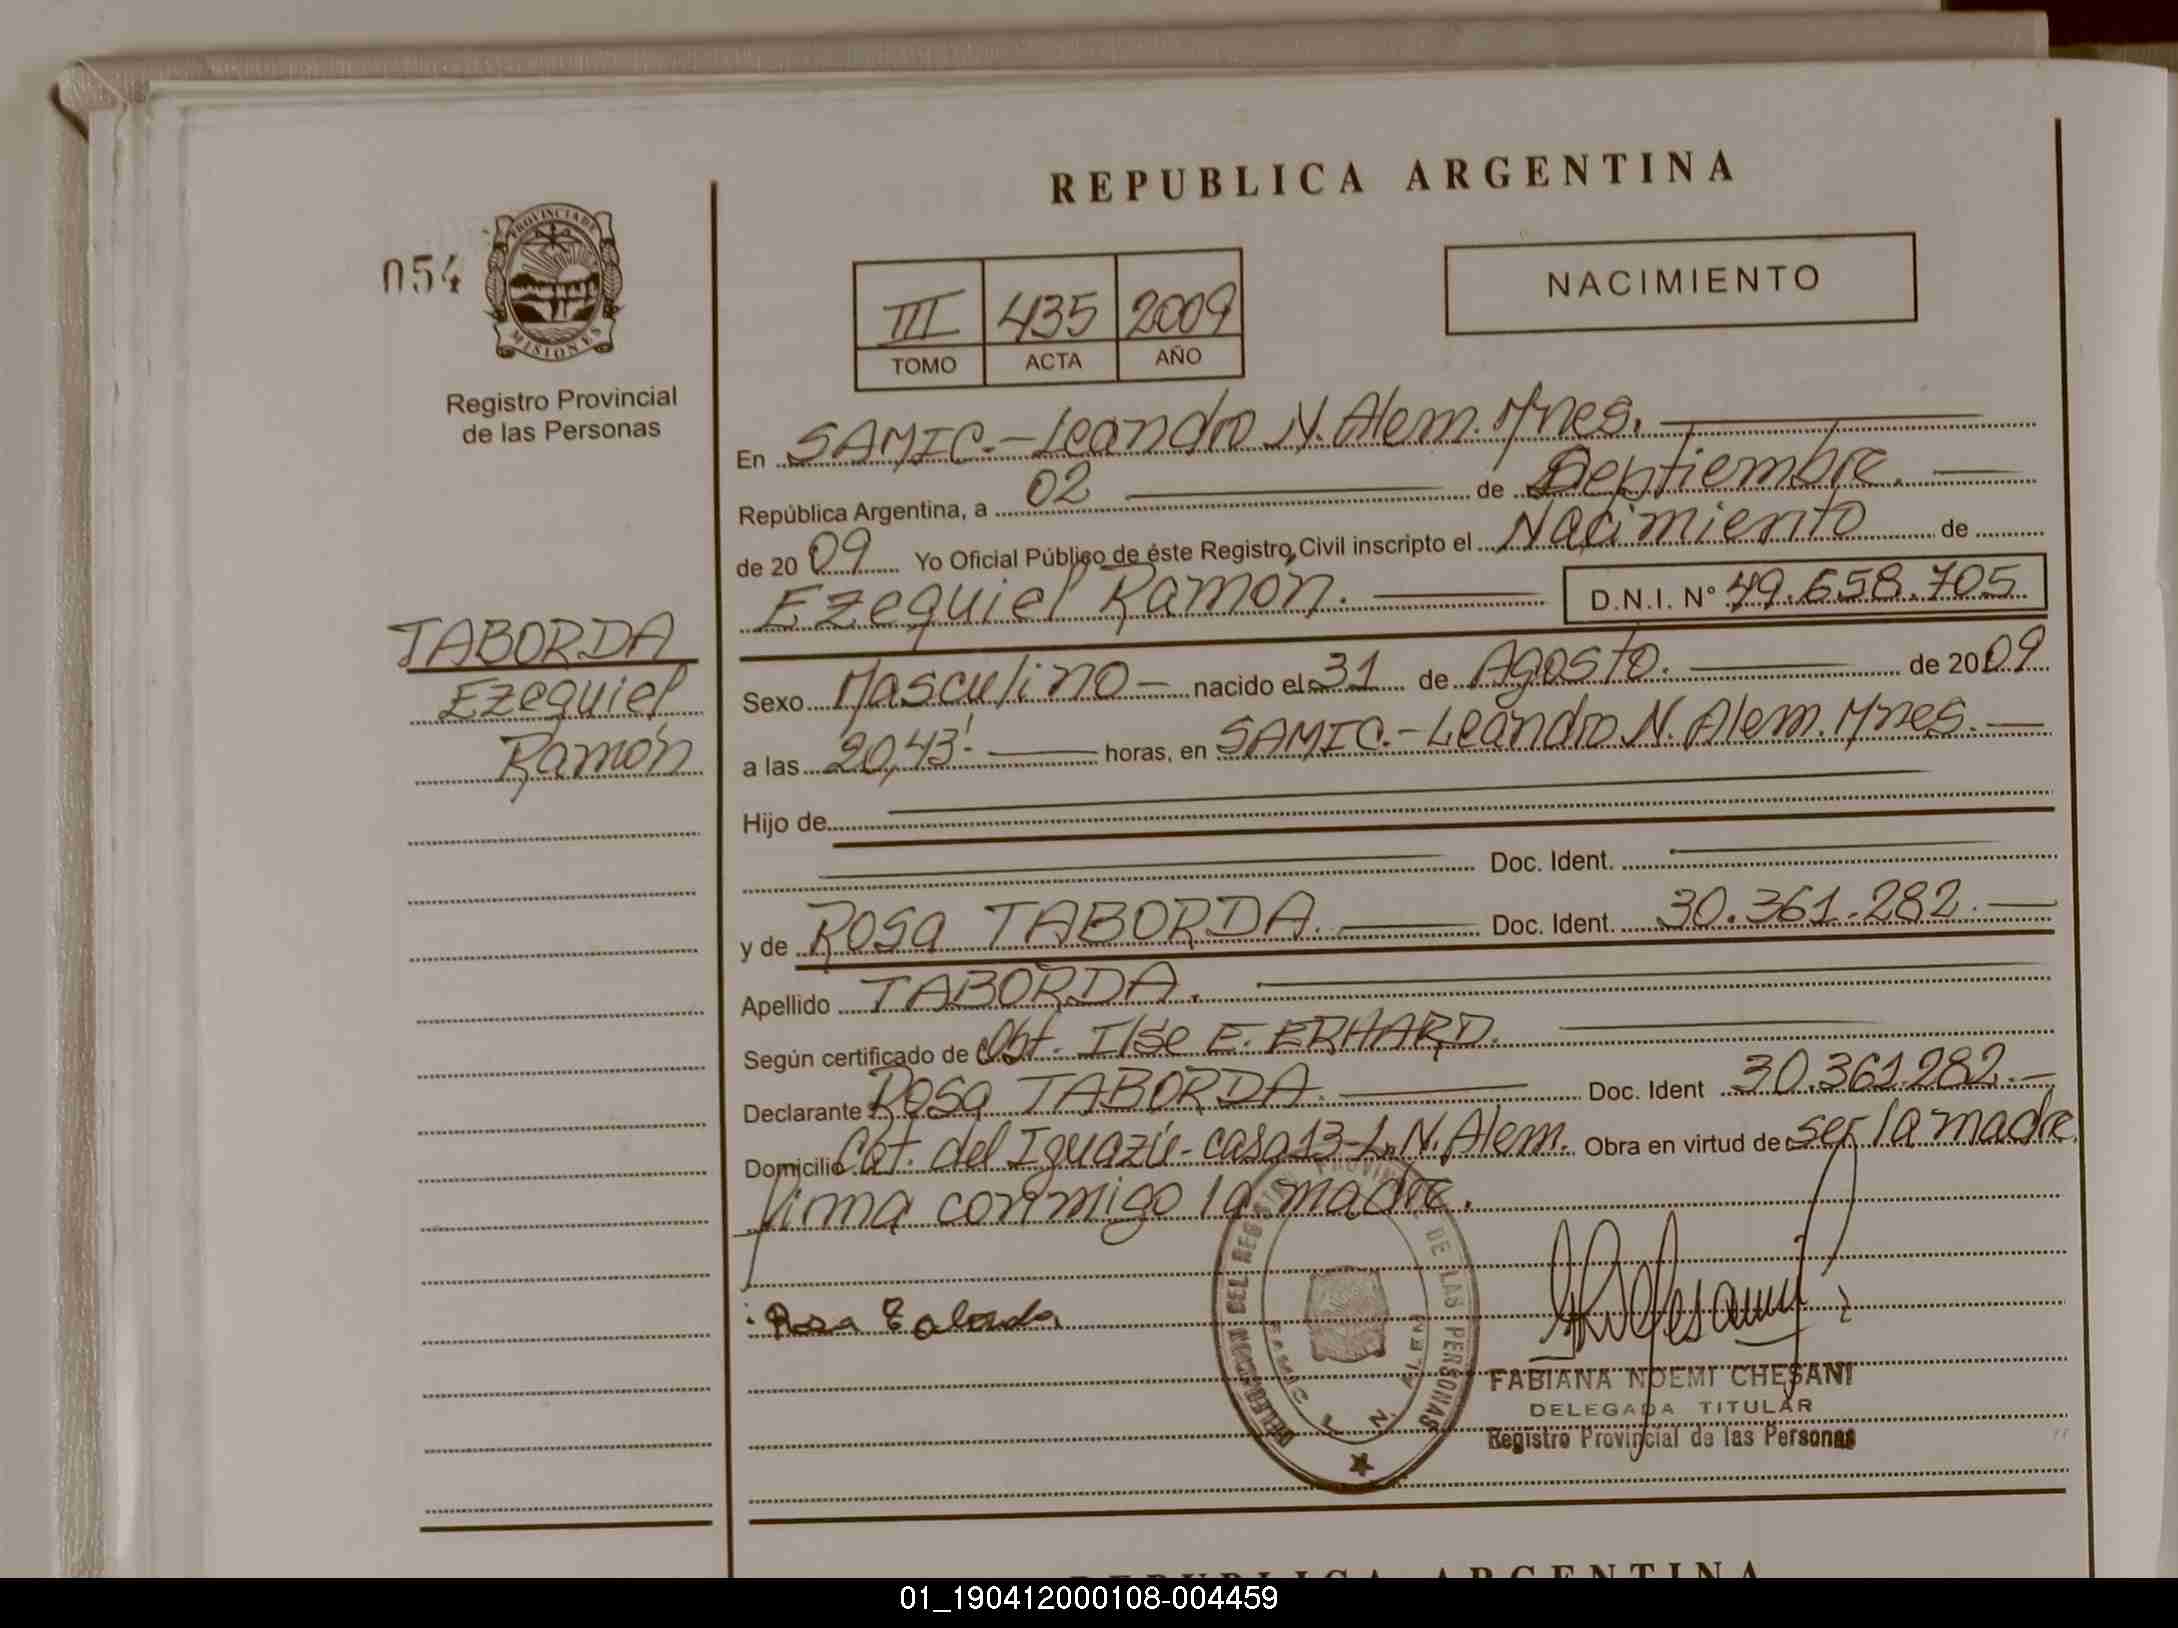 REPUBLICA ARGENTINA
054
PROVINCIA DE
MISIONES
Registro Provincial
de las Personas
III 435 2009
TOMO ACTA AÑO
NACIMIENTO
TABORDA
Ezequiel
Ramón
En SAMIC.-Leandro N. Alem. Mnes.
República Argentina, a 02 de Septiembre.
de 2009 Yo Oficial Público de éste Registro Civil inscripto el Nacimiento de
Ezequiel Ramón. D.N.I. N° 49.658.705
Sexo Masculino - nacido el 31 de Agosto. de 2009
a las 20,43'. horas, en SAMIC.-Leandro N. Alem. Mnes.
Hijo de
Doc. Ident.
y de Rosa TABORDA. Doc. Ident. 30.361.282.
Apellido TABORDA.
Según certificado de Obt. Ilse E. ERHARD.
Declarante Rosa TABORDA. Doc. Ident 30.361.282.-
Domicilio Cat. del Iguazú-casa 13-L.N. Alem. Obra en virtud de ser la madre.
Firma conmigo la madre.
Rosa Taborda
DELEGACION DEL REGISTRO PROVINCIAL DE LAS PERSONAS
SAMIC L. N. ALEM
FABIANA NOEMI CHESANI
DELEGADA TITULAR
Registro Provincial de las Personas
REPUBLICA ARGENTINA
01_190412000108-004459